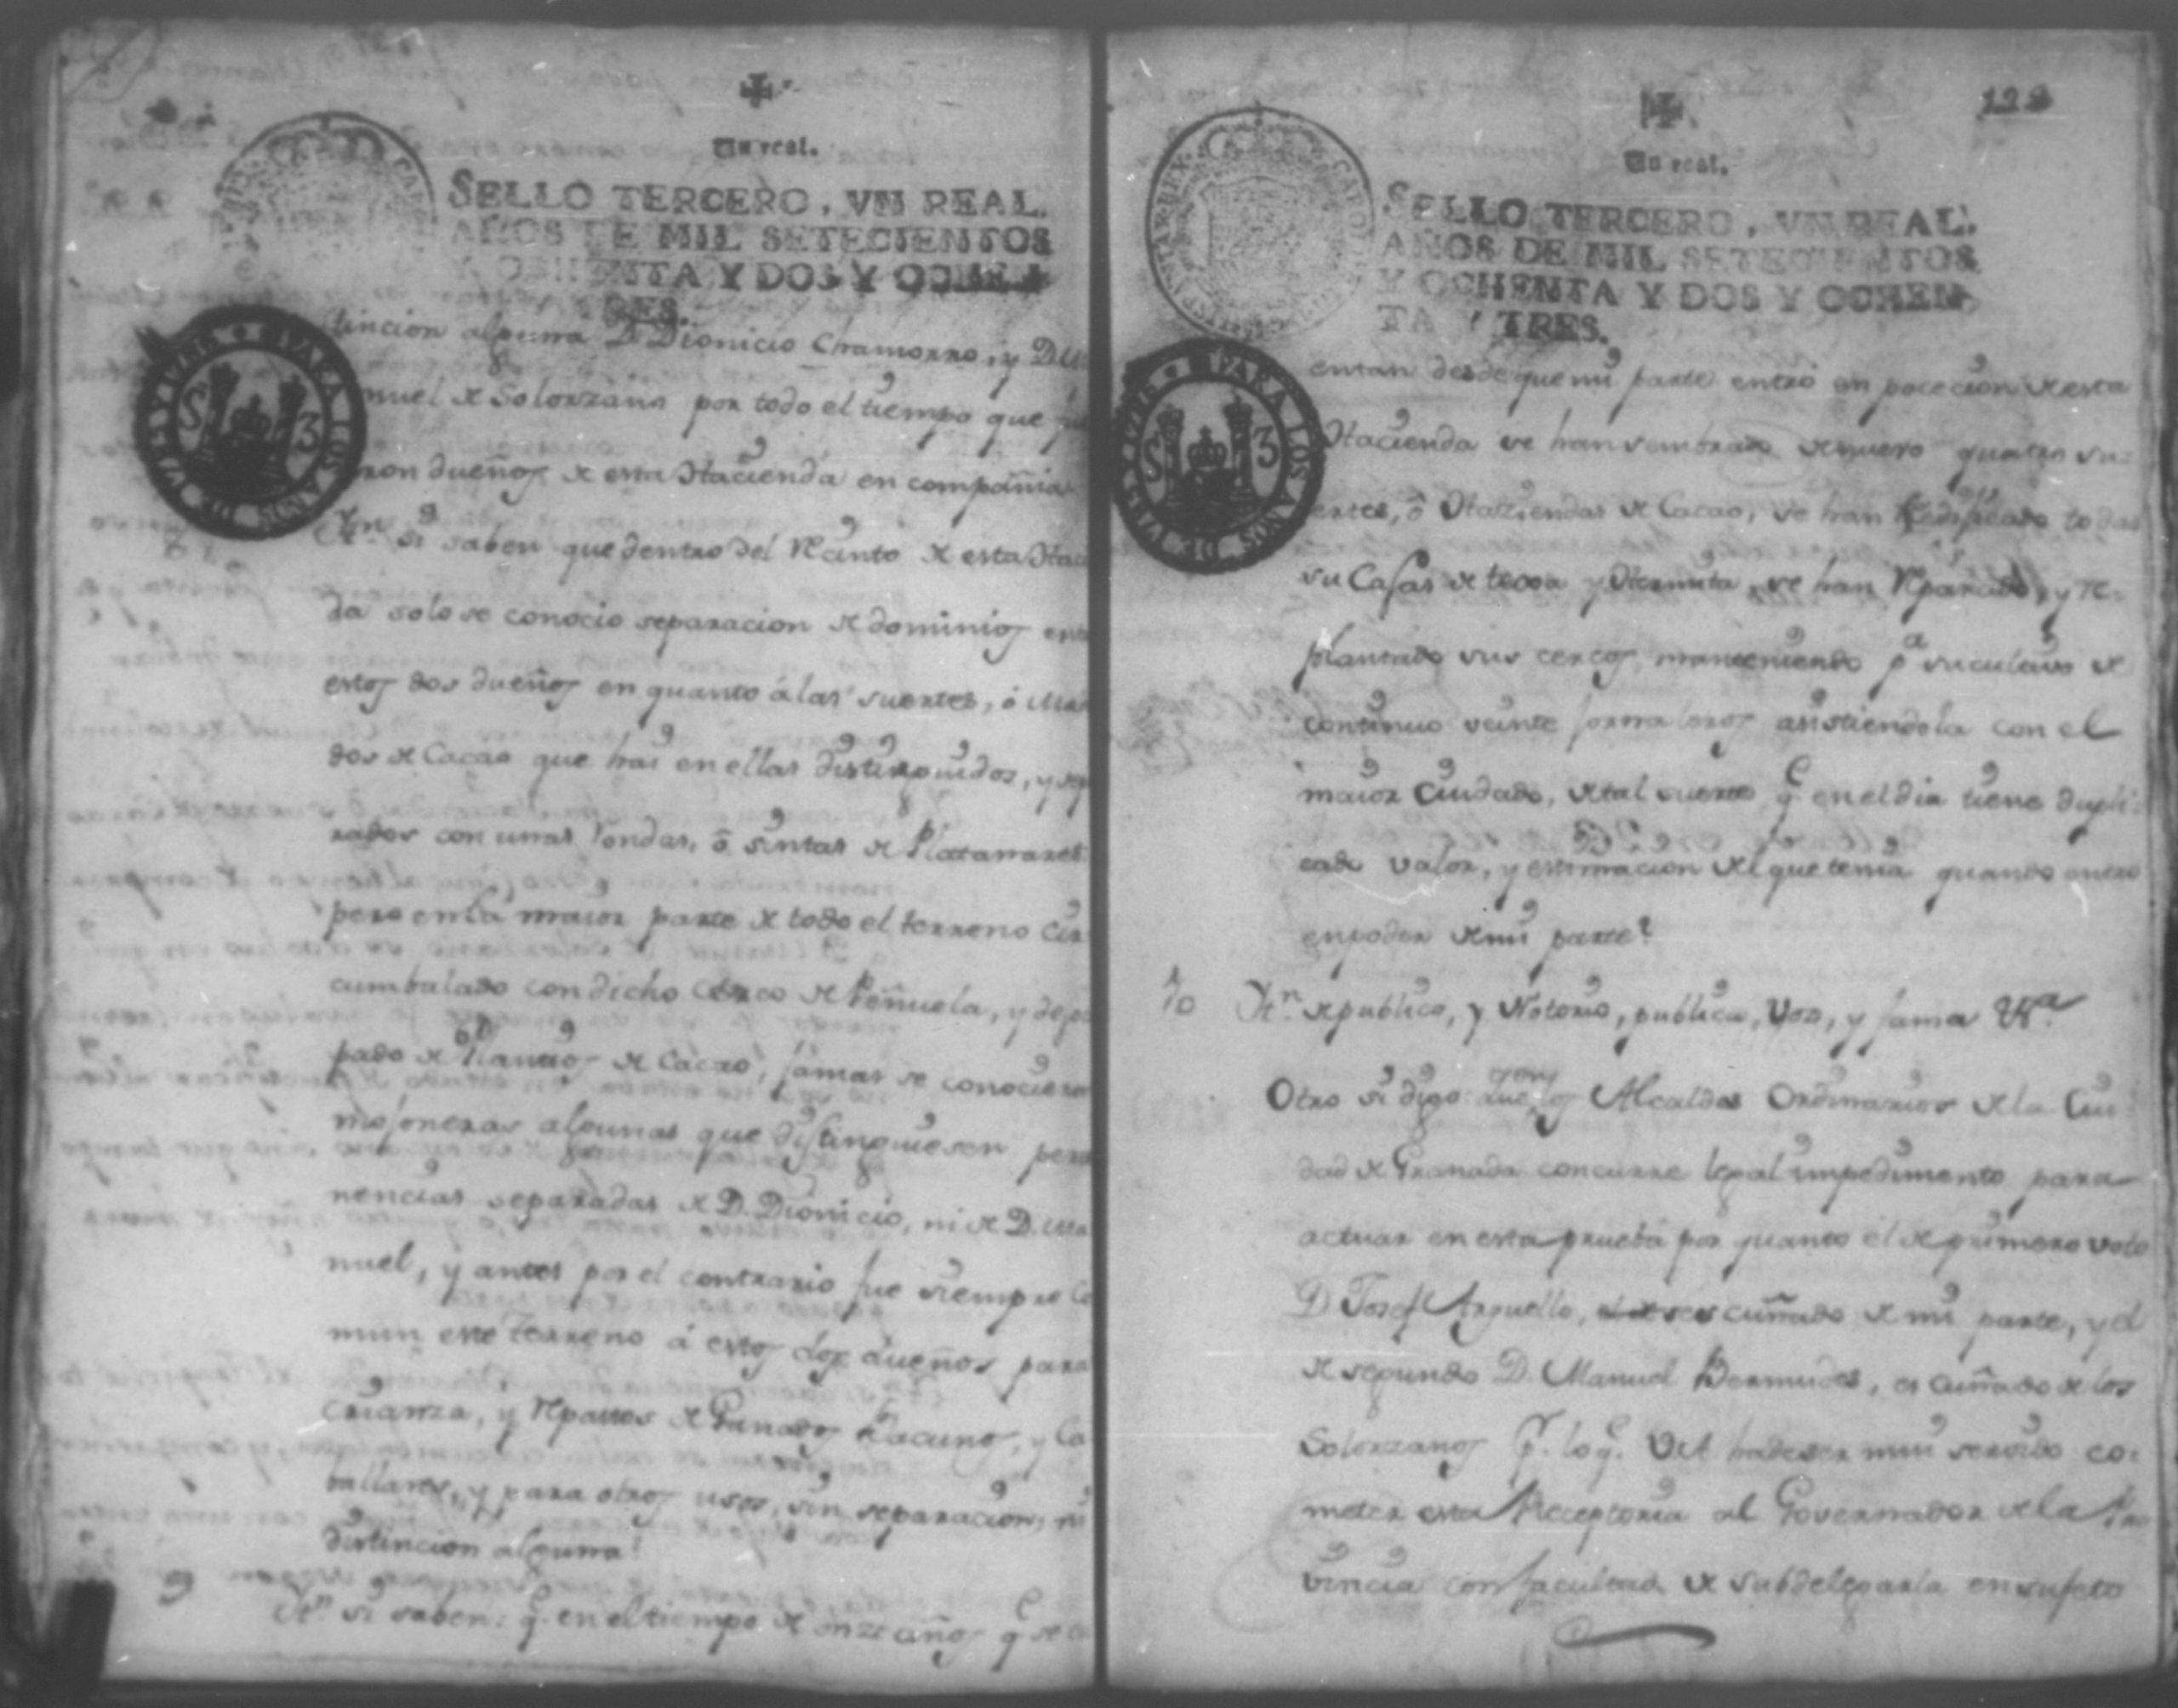 Un real.
SELLO TERCERO, VN REAL.
AÑOS DE MIL SETECIENTOS
Y OCHENTA Y DOS Y OCHEN
TRES.
PARA LOS AÑOS DE
S 3
tincion alguna D. Dionicio Chamorro, y D. M
nuel de Solorzano por todo el tiempo que fue
ron dueños de esta Hacienda en compañia
Ytn. si saben que dentro del Recinto de esta Haci
da solo se conocio separacion de dominios ent
estos dos dueños en quanto á las suertes, ó
dos de Cacao que hai en ellas distinguidos, y sepa
rados con unas rondas, ô sintas de Platanares
pero en la maior parte de todo el terreno cir
cumbalado con dicho cerco de Peñuela, y
pado de Plantios de Cacao, jamas se conocieron
mojoneras algunas que distinguiesen perte
nencias separadas de D. Dionicio, ni de D. Ma
nuel, y antes por el contrario fue siempre Co
mun este terreno á estos dos dueños para
crianza, y Repastos de Ganados Bacunos, y Ca
ballares, y para otros usos, sin separacion, ni
distincion alguna?
9 Ytn. si saben: q.e en el tiempo de onze años q.e se
128
Un real.
SELLO TERCERO, VN REAL.
AÑOS DE MIL SETECIENTOS
Y OCHENTA Y DOS Y OCHEN
TA Y TRES.
PARA LOS AÑOS DE
S 3
entan desde que mi parte entró en pocecion de esta
Hacienda se han sembrado de nuevo quatro su
ertes, ô Haziendas de Cacao, se han Redificado todas
su Casas de texa y Hermita, se han Reparado, y re
plantado sus cercos, manteniendo p.a su cultivo de
continuo veinte jornaleros asistiendola con el
maior Cuidado, de tal suerte q.e en el dia tiene dupli
cado valor, y estimacion del que tenia quando entro
en poder de mi parte?
10 Ytn. de publico, y Notorio, publica, Voz, y fama
Otro si digo que los Alcaldes Ordinarios de la Ciu
dad de Granada concurre legal impedimento para
actuar en esta prueba por quanto el de primero voto
D. Josef Arguello, cuñado de mi parte, y el
de segundo D. Manuel Bermudes, es cuñado de los
Solorzanos p.r lo q.e VA. ha de ser mui servido co
meter esta Receptoria al Governador de la Pro
vincia con facultad de subdelegarla en sujeto